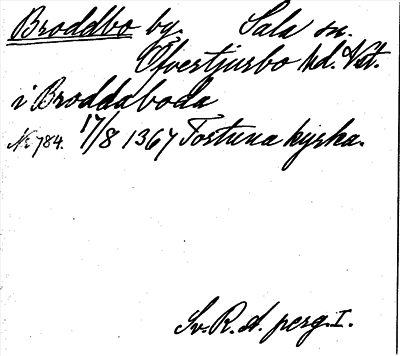 Broddbo by. Sala sn.
Öfvertjurbo hd. Vstm.
i Broddaboda
Nr 784. 17/8 1367 Tortuna kyrka.
Sv. R. A. perg. I.